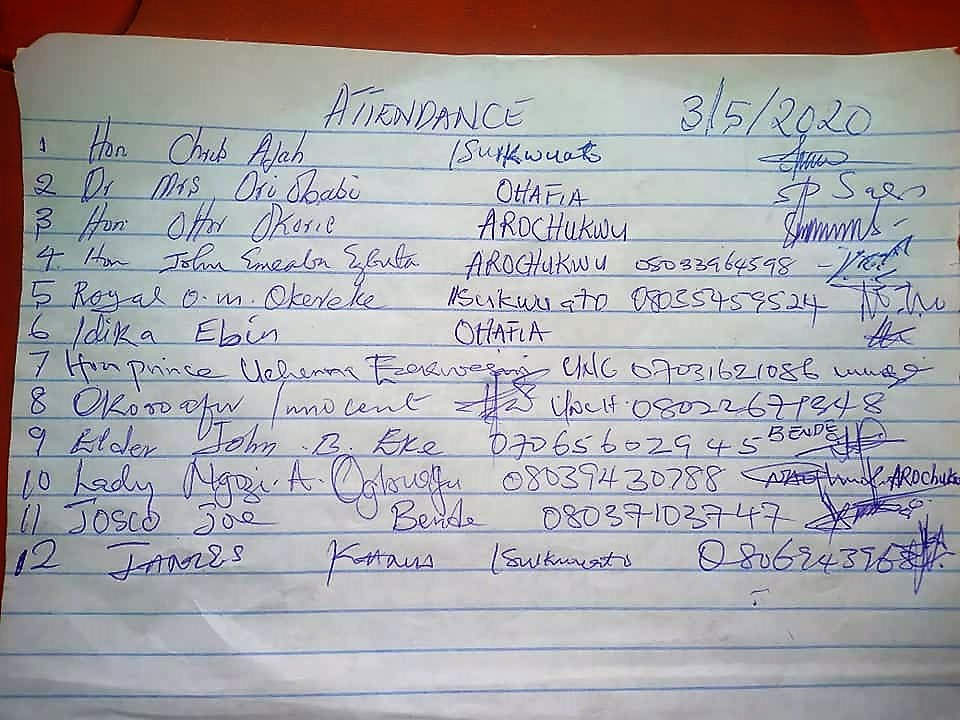 ATTENDANCE 3/5/2020
1 Hon Chris Ajah Isuikwuato
2 Dr Mrs Ori Obabi OHAFIA
3 Hon Okorie AROCHUKWU
4. Hon John Emeaba AROCHUKWU 08033964598
5 Royal O.M. Okereke Isuikwuato 08035459524
6 Idika Ebin OHAFIA
7 Hon prince Uchenna UNC 07031621086
8 Okoroafor Innocent UNCH. 08022679348
9 Elder John .B. Eke 07065602945 BENDE
10 Lady Ngozi. A. 08039430788 AROChuku
11 Josco Joe Bende 08037103747
12 James Isuikwuato 080694396